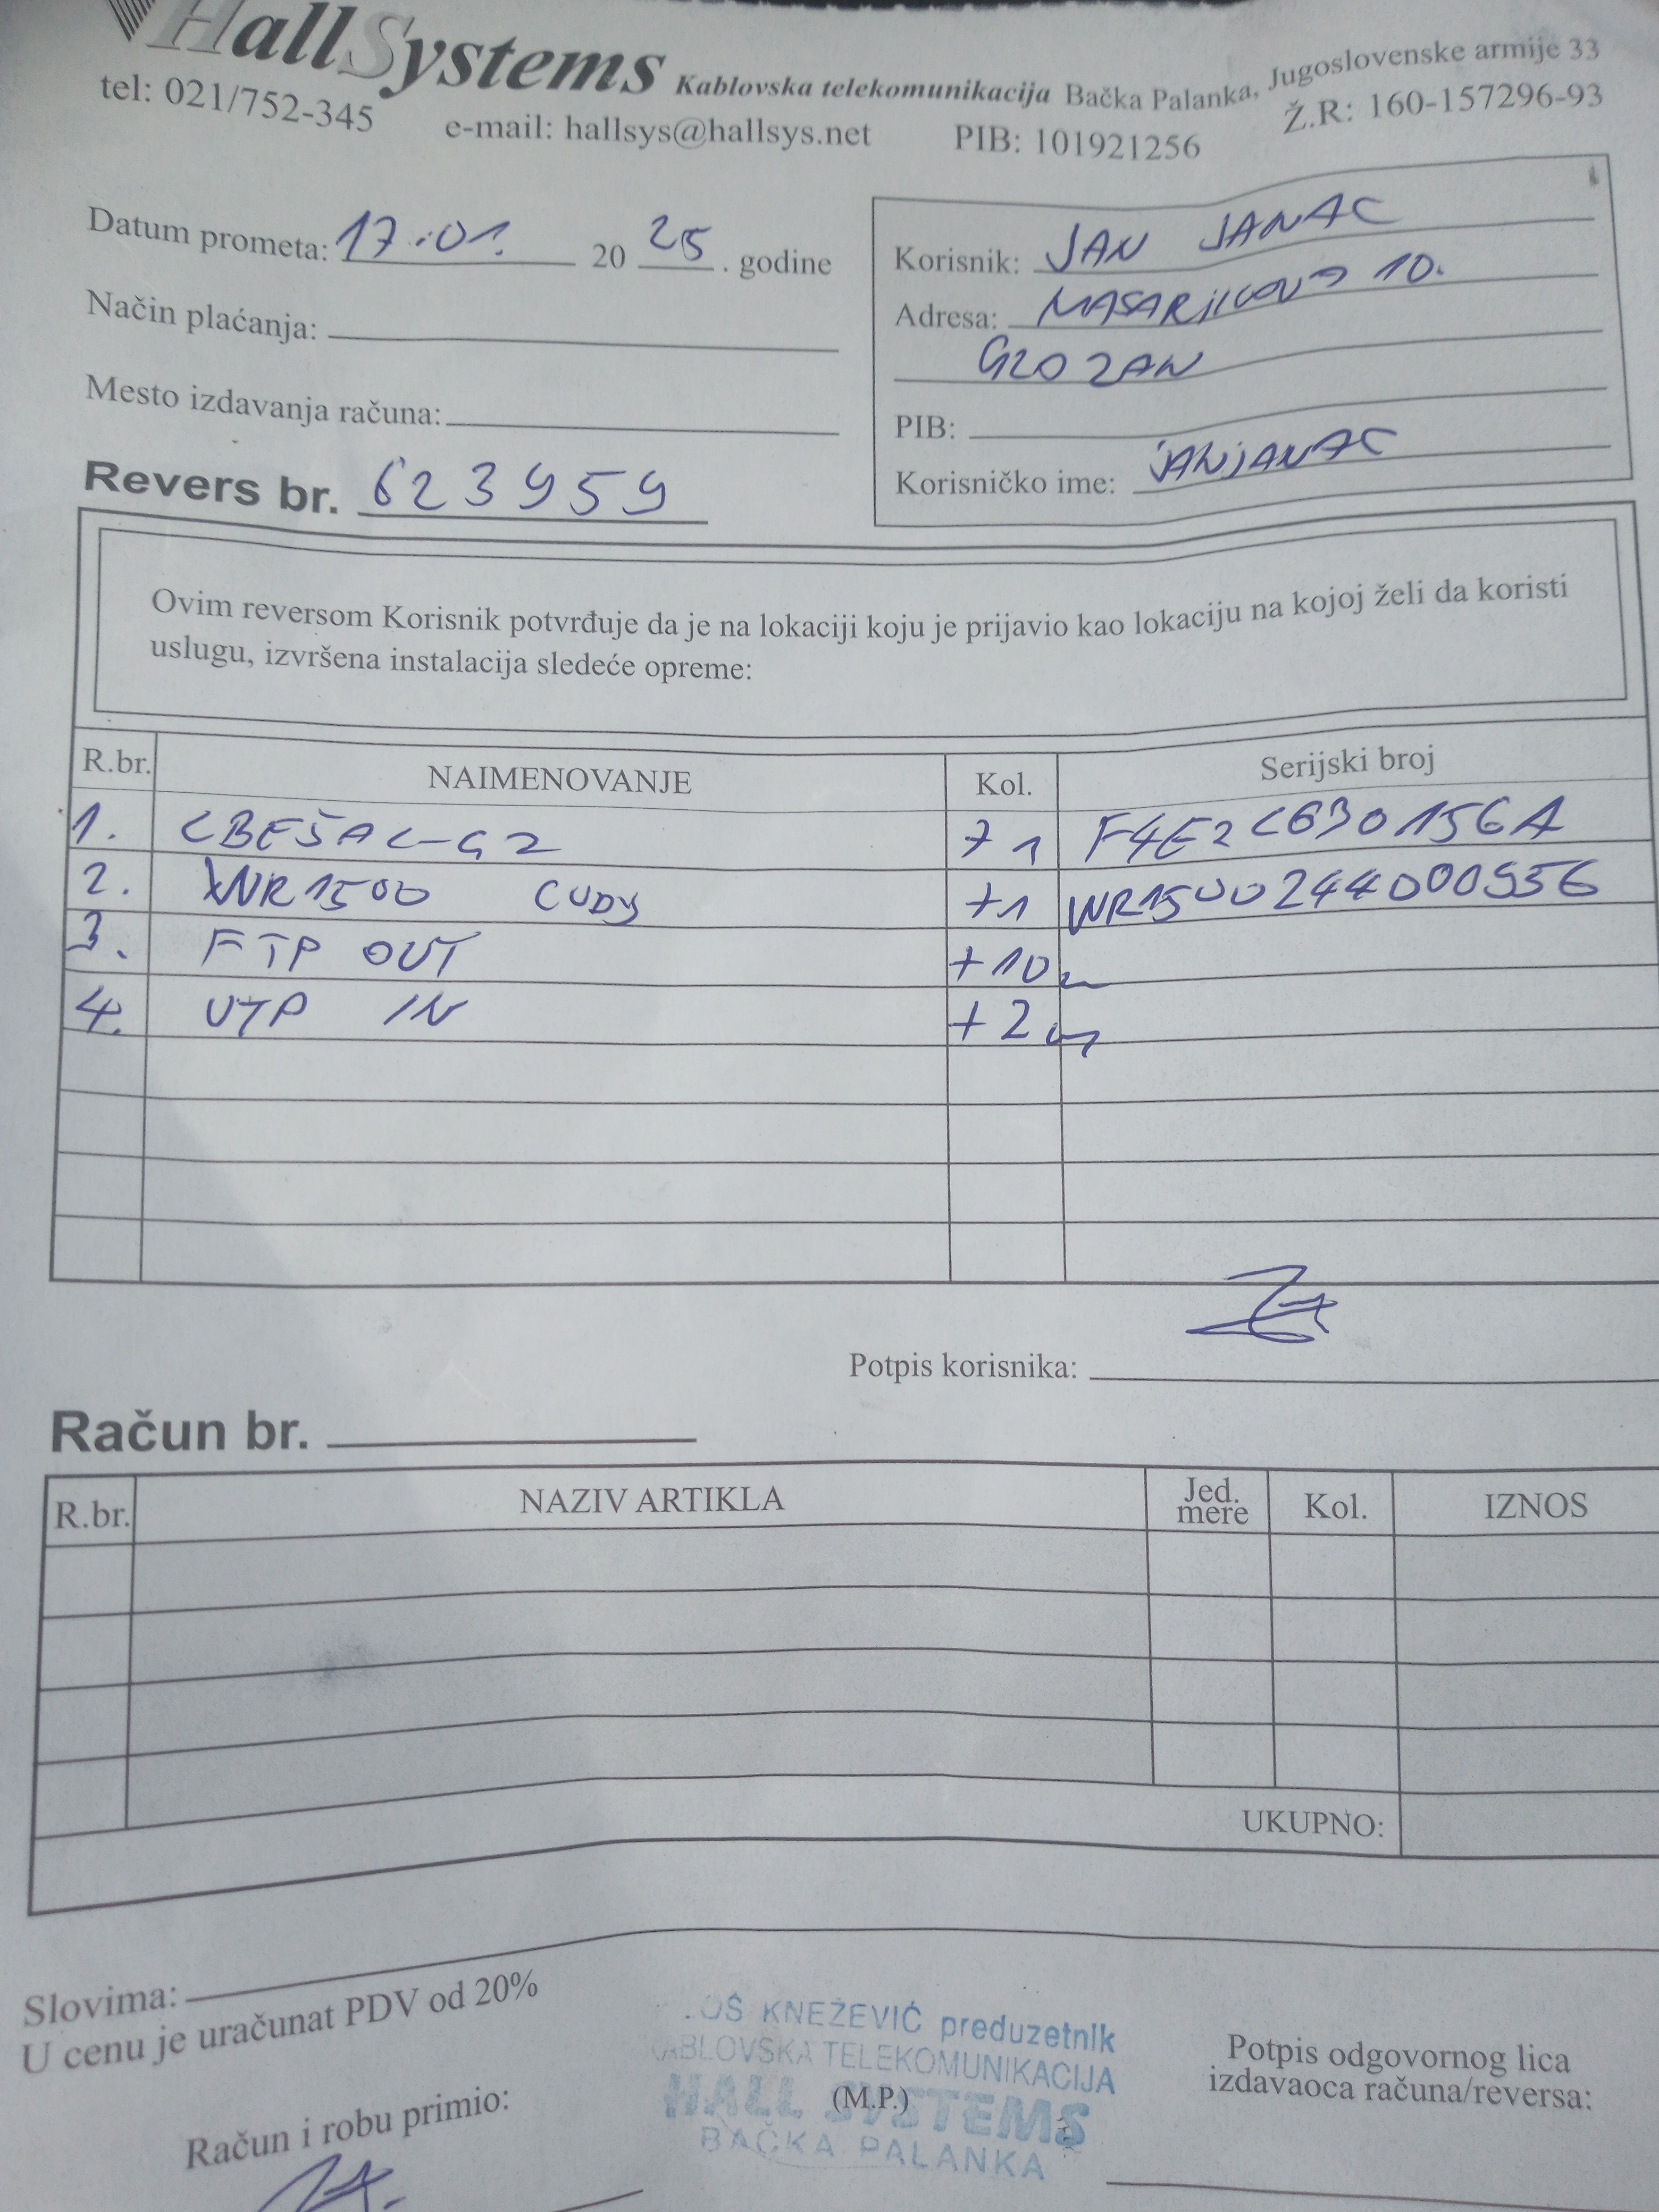 HallSystems Kablovska telekomunikacija Bačka Palanka, Jugoslovenske armije 33
tel: 021/752-345 e-mail: hallsys@hallsys.net PIB: 101921256 Ž.R: 160-157296-93
Datum prometa: 17.01. 20 25 . godine
Način plaćanja:
Mesto izdavanja računa:
Revers br. 623959
Korisnik: JAN JANAC
Adresa: MASARIKOVA 10.
GLOZAN
PIB:
Korisničko ime: JANJANAC
Ovim reversom Korisnik potvrđuje da je na lokaciji koju je prijavio kao lokaciju na kojoj želi da koristi
uslugu, izvršena instalacija sledeće opreme:
R.br. NAIMENOVANJE Kol. Serijski broj
1. LBE5AC-G2 +1 F4E2C630156A
2. WR1500 CUDY +1 WR1500244000556
3. FTP OUT +10m
4. UTP IN +2m
Potpis korisnika:
Račun br.
R.br. NAZIV ARTIKLA Jed. mere Kol. IZNOS
UKUPNO:
Slovima:
U cenu je uračunat PDV od 20%
Račun i robu primio:
OŠ KNEŽEVIĆ preduzetnik
KABLOVSKA TELEKOMUNIKACIJA
HALL SYSTEMS
(M.P.)
BAČKA PALANKA
Potpis odgovornog lica
izdavaoca računa/reversa: